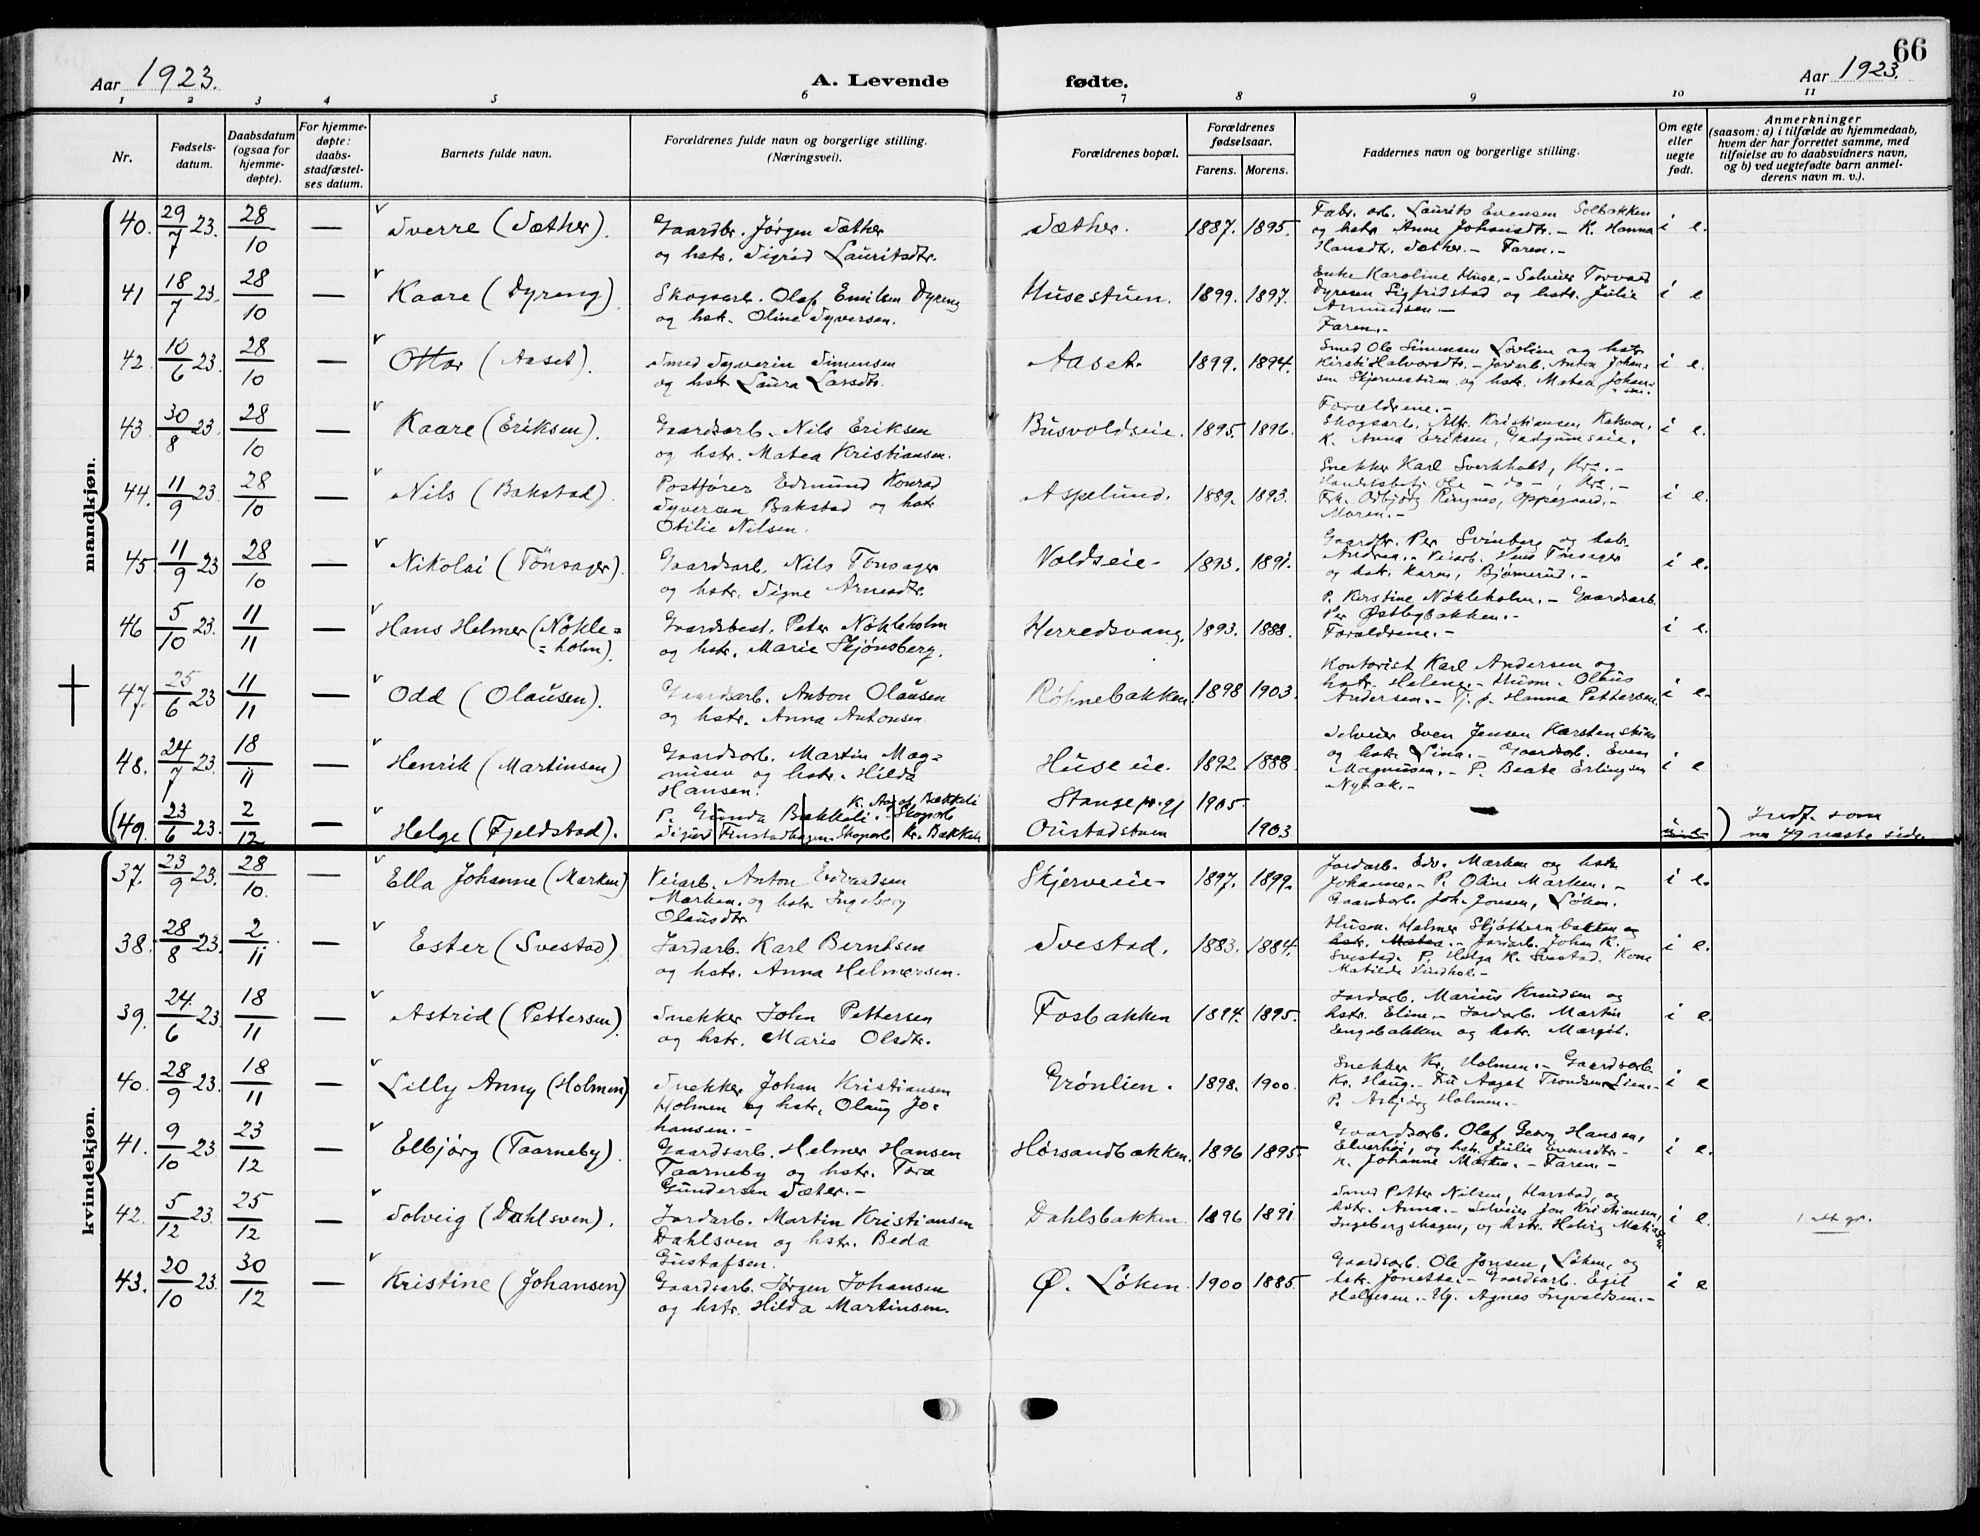 66
Aar 1923.
A. Levende
fødte.
Aar 1923.
1 2 3 4 5 6 7 8 9 10 11
Nr.
Fødsels-
datum.
Daabsdatum
(ogsaa for
hjemme-
døpte).
For hjemme-
døpte:
daabs-
stadfæstel-
ses datum.
Barnets fulde navn.
Forældrenes fulde navn og borgerlige stilling.
(Næringsvei).
Forældrenes bopæl.
Forældrenes
fødselsaar.
Farens. Morens.
Faddernes navn og borgerlige stilling.
Om egte
eller
uegte
født.
Anmerkninger
(saasom: a) i tilfælde av hjemmedaab,
hvem der har forrettet samme, med
tilføielse av to daabsvidners navn,
og b) ved uegtefødte barn anmel-
derens navn m. v.).
mandkjøn.
40. 29/7 23. 28/10 — Sverre (Sæther).
Gaardbr. Jørgen Sæther
og hstr. Sigrid Lauritsdtr.
Sæther. 1887. 1895.
Fabr. arb. Laurits Evensen Solbakken
og hstr Anne Johansdtr. - K. Hanna
Hansdtr. Sæther. - Faren. -
i e.
41 18/7 23. 28/10 — Kaare (Dyreng).
Skogsarb. Olaf Emilsen Dyreng
og hst. Oline Syversen.
Husestuen. 1899. 1897.
Enke Karoline Huse. - Selveier Torvald
Dyresen Sigfridstad og hstr. Julie
Amundsen -
Faren. -
i e
42 10/6 23. 28/10 — Ottar (Aaset).
Smed Syverin Simensen
og hstr Laura Larsdtr.
Aaset. 1899. 1894.
Smed Ole Simensen Løvlien og hstr
Kirsti Halvorsdtr. - Jordarb. Anton Johan-
sen Skjervestuen og hstr. Matea Johan-
sen.
i e.
43 30/8 23. 28/10 — Kaare (Eriksen).
Gaardsarb. Nils Eriksen
og hstr. Matea Kristiansen.
Busvoldseie. 1895. 1896.
Forældrene. -
Skogsarb. Alfr. Kristiansen
K. Anna Eriksen,
i e.
44. 11/9 23. 28/10 — Nils (Bakstad).
Postfører Edmund Konrad
Syversen Bakstad og hstr
Otilie Nilsen.
Aspelund. 1889. 1893.
Snekker Karl Sverkholt,
Handelsbetj. Ole - do -,
Frk. Odbjørg Ringnes, Oppegaard. -
Moren. -
i e.
45 11/9 23 28/10 — Nikolai (Tönsager).
Gaardsarb. Nils Tönsager
og hstr. Signe Arnesdtr.
Voldseie - 1893. 1891.
Gaardbr. Per Svinberg og hstr.
Andrea. - Veiarb. Hans Tönsager
og hstr. Karen, Bjørnerud. -
i e.
46 5/10 23. 11/11 — Hans Helmer (Nökle=
= holm).
Gaardsbest. Peter Nökleholm
og hstr. Marie Skjønsberg.
Herredsvang. 1893. 1888.
P. Kerstine Nökleholm. - Gaardsarb.
Per Østbybakken. -
Forældrene. -
i e.
47. 25/6 23 11/11 — Odd (Olausen).
Gaardsarb. Anton Olausen
og hstr. Anna Antonsen
Røhnebakken. 1898 1903.
Kontorist Karl Andersen og
hstr. Helene. - Husm. Olaus
Andersen. - Tj. p. Hanna Pettersen.
i e.
48. 24/7 23. 18/11 — Henrik (Martinsen)
Gaardsarb. Martin Mag=
nusen og hstr. Hilda
Hansen.
Huseeie. 1892. 1888.
Selveier Even Jensen Karstenstuen
og hstr. Lina. - Gaardsarb. Even
Magnussen. - P. Beate Erlingsen
Nybak. -
i e
(49. 23/6 23. 2/12 — Helge (Fjeldstad).
K. Aagot Bækkeli
P. Gunda Bækkeli. - Skogarb
Sigurd Finstadhagen. Skogarb Kr. Bækkeli
Stange pr.gj 1905
Oustadstuen 1903
—
) Indf. som
no 49 næste side
kvindekjøn.
37. 23/9 23. 28/10. — Ella Johanne (Marken)
Veiarb. Anton Edvardsen
Marken. og hstr. Ingeborg
Olausdtr
Skjerveeie - 1897. 1899.
Jordarb. Edv. Marken og hstr
Johanna. - P. Oline Marken. -
Gaardsarb. Joh. Jonsen, Løken.
i e.
38. 28/8 23. 2/11 — Ester (Svestad)
Jordarb. Karl Berntsen
og hstr. Anna Helmersen.
Svestad. 1883. 1884.
Husm. Helmer Skjøthernbakken og
hstr. Matea. - Jordarb. Johan K.
Svestad. P. Helga K. Svestad. Kone
Matilde Vindhol. -
i e.
39. 24./6 23. 18/11 — Astrid (Pettersen).
Snekker John Pettersen
og hstr. Marie Olsdtr.
Fosbakken 1894. 1895.
Jordarb. Marius Knudsen og
hstr. Eline. - Jordarb. Martin
Engebakken og hstr. Margit.
i e.
40. 28/9 23. 18/11 — Lilly Anny (Holmen)
Snekker Johan Kristiansen
Holmen og hstr. Olaug Jo=
hansen. -
Grönlien. 1898. 1900.
Snekker Kr. Holmen. - Gaardsarb.
Kr. Haug. - Fru Aagot Trondsen Lien. -
P. Asbjørg Holmen. -
i e
41. 9/10 23. 23/12 — Elbjörg (Taarneby).
Gaardsarb. Helmer Hansen
Taarneby og hstr. Tora
Gundersen Sæter. -
Hørsandbakken. 1896 1895
Gaardsarb. Olaf Georg Hansen,
Elverhøi, og hstr. Julie Evensdtr. -
K. Johanne Marken. - Faren. -
i e.
42. 5/12 23. 25/12 — Solveig (Dahlsven).
Jordarb. Martin Kristiansen
Dahlsven og hstr. Beda
Gustafsen.
Dahlsbakken. 1896 1891
Smed Petter Nilsen, Harstad, og
hstr. Anna. - Selveier Jon Kristiansen,
Ingebergshagen, og hstr. Helvig Mathisen
i e.
1 att gr.
43. 20/10 23. 30/12 — Kristine (Johansen)
Gaardsarb. Jørgen Johansen
og hstr. Hilda Martinsen.
Ø. Löken. 1900 1885.
Gaardsarb. Ole Jonsen, Löken, og
hstr. Jonette. - Gaardsarb. Egil
Helgesen. - Ug. Agnes Ingvaldsen. -
i e